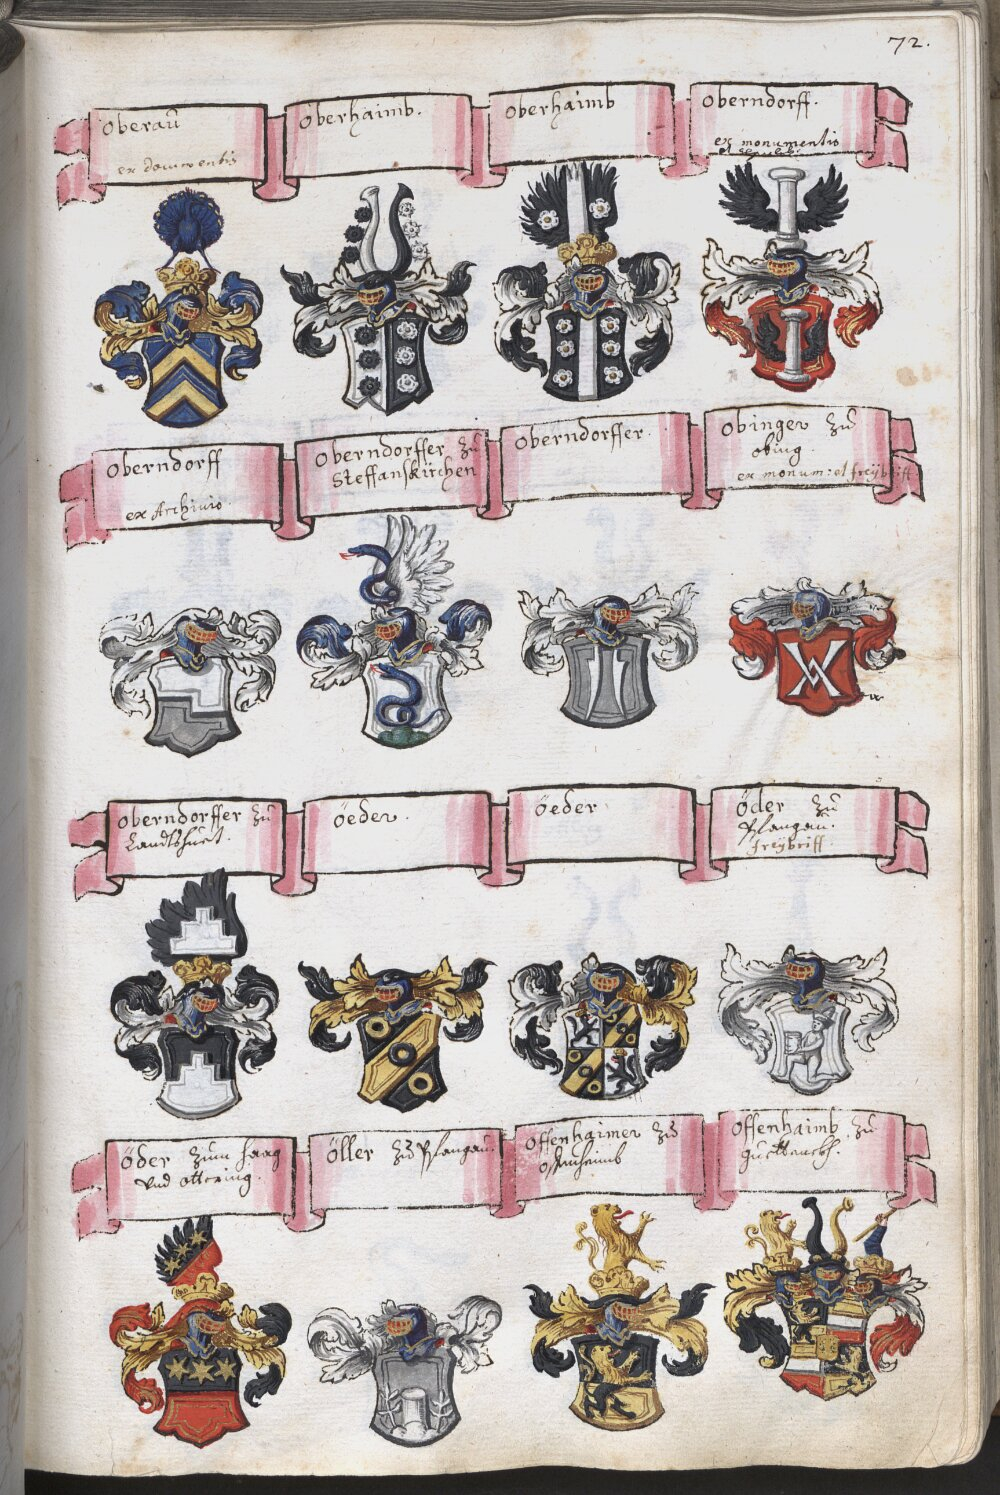 72.
Oberau
ex documentis
Oberhaimb.
Oberhaimb
Oberndorff.
ex monumentis
Oberndorff
ex Archiuio.
Oberndorffer zu
Steffanskirchen
Oberndorffer.
Obinger zu
obing.
ex monum: et freÿbriff
Oberndorffer zu
Landtshuet.
öeder.
öeder
öder zu
Pfangau.
freÿbriff
öder zum haag
vnd ottering.
öller zu Pfangau.
Offenhaimer zu
Offenhaimb zu